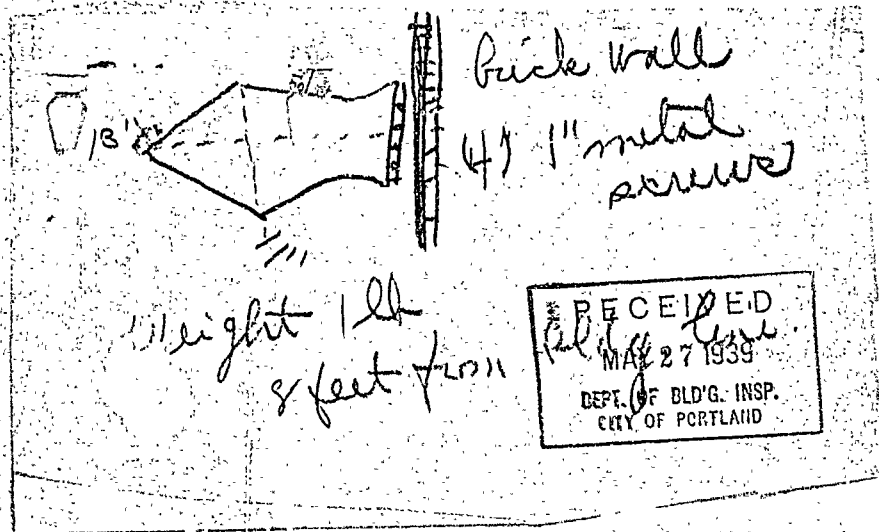 brick wall
13"
(4) 1" metal
screws
Weight 1 lb
8 feet from bldg line.
RECEIVED
MAY 27 1939
DEPT. OF BLD'G. INSP.
CITY OF PORTLAND